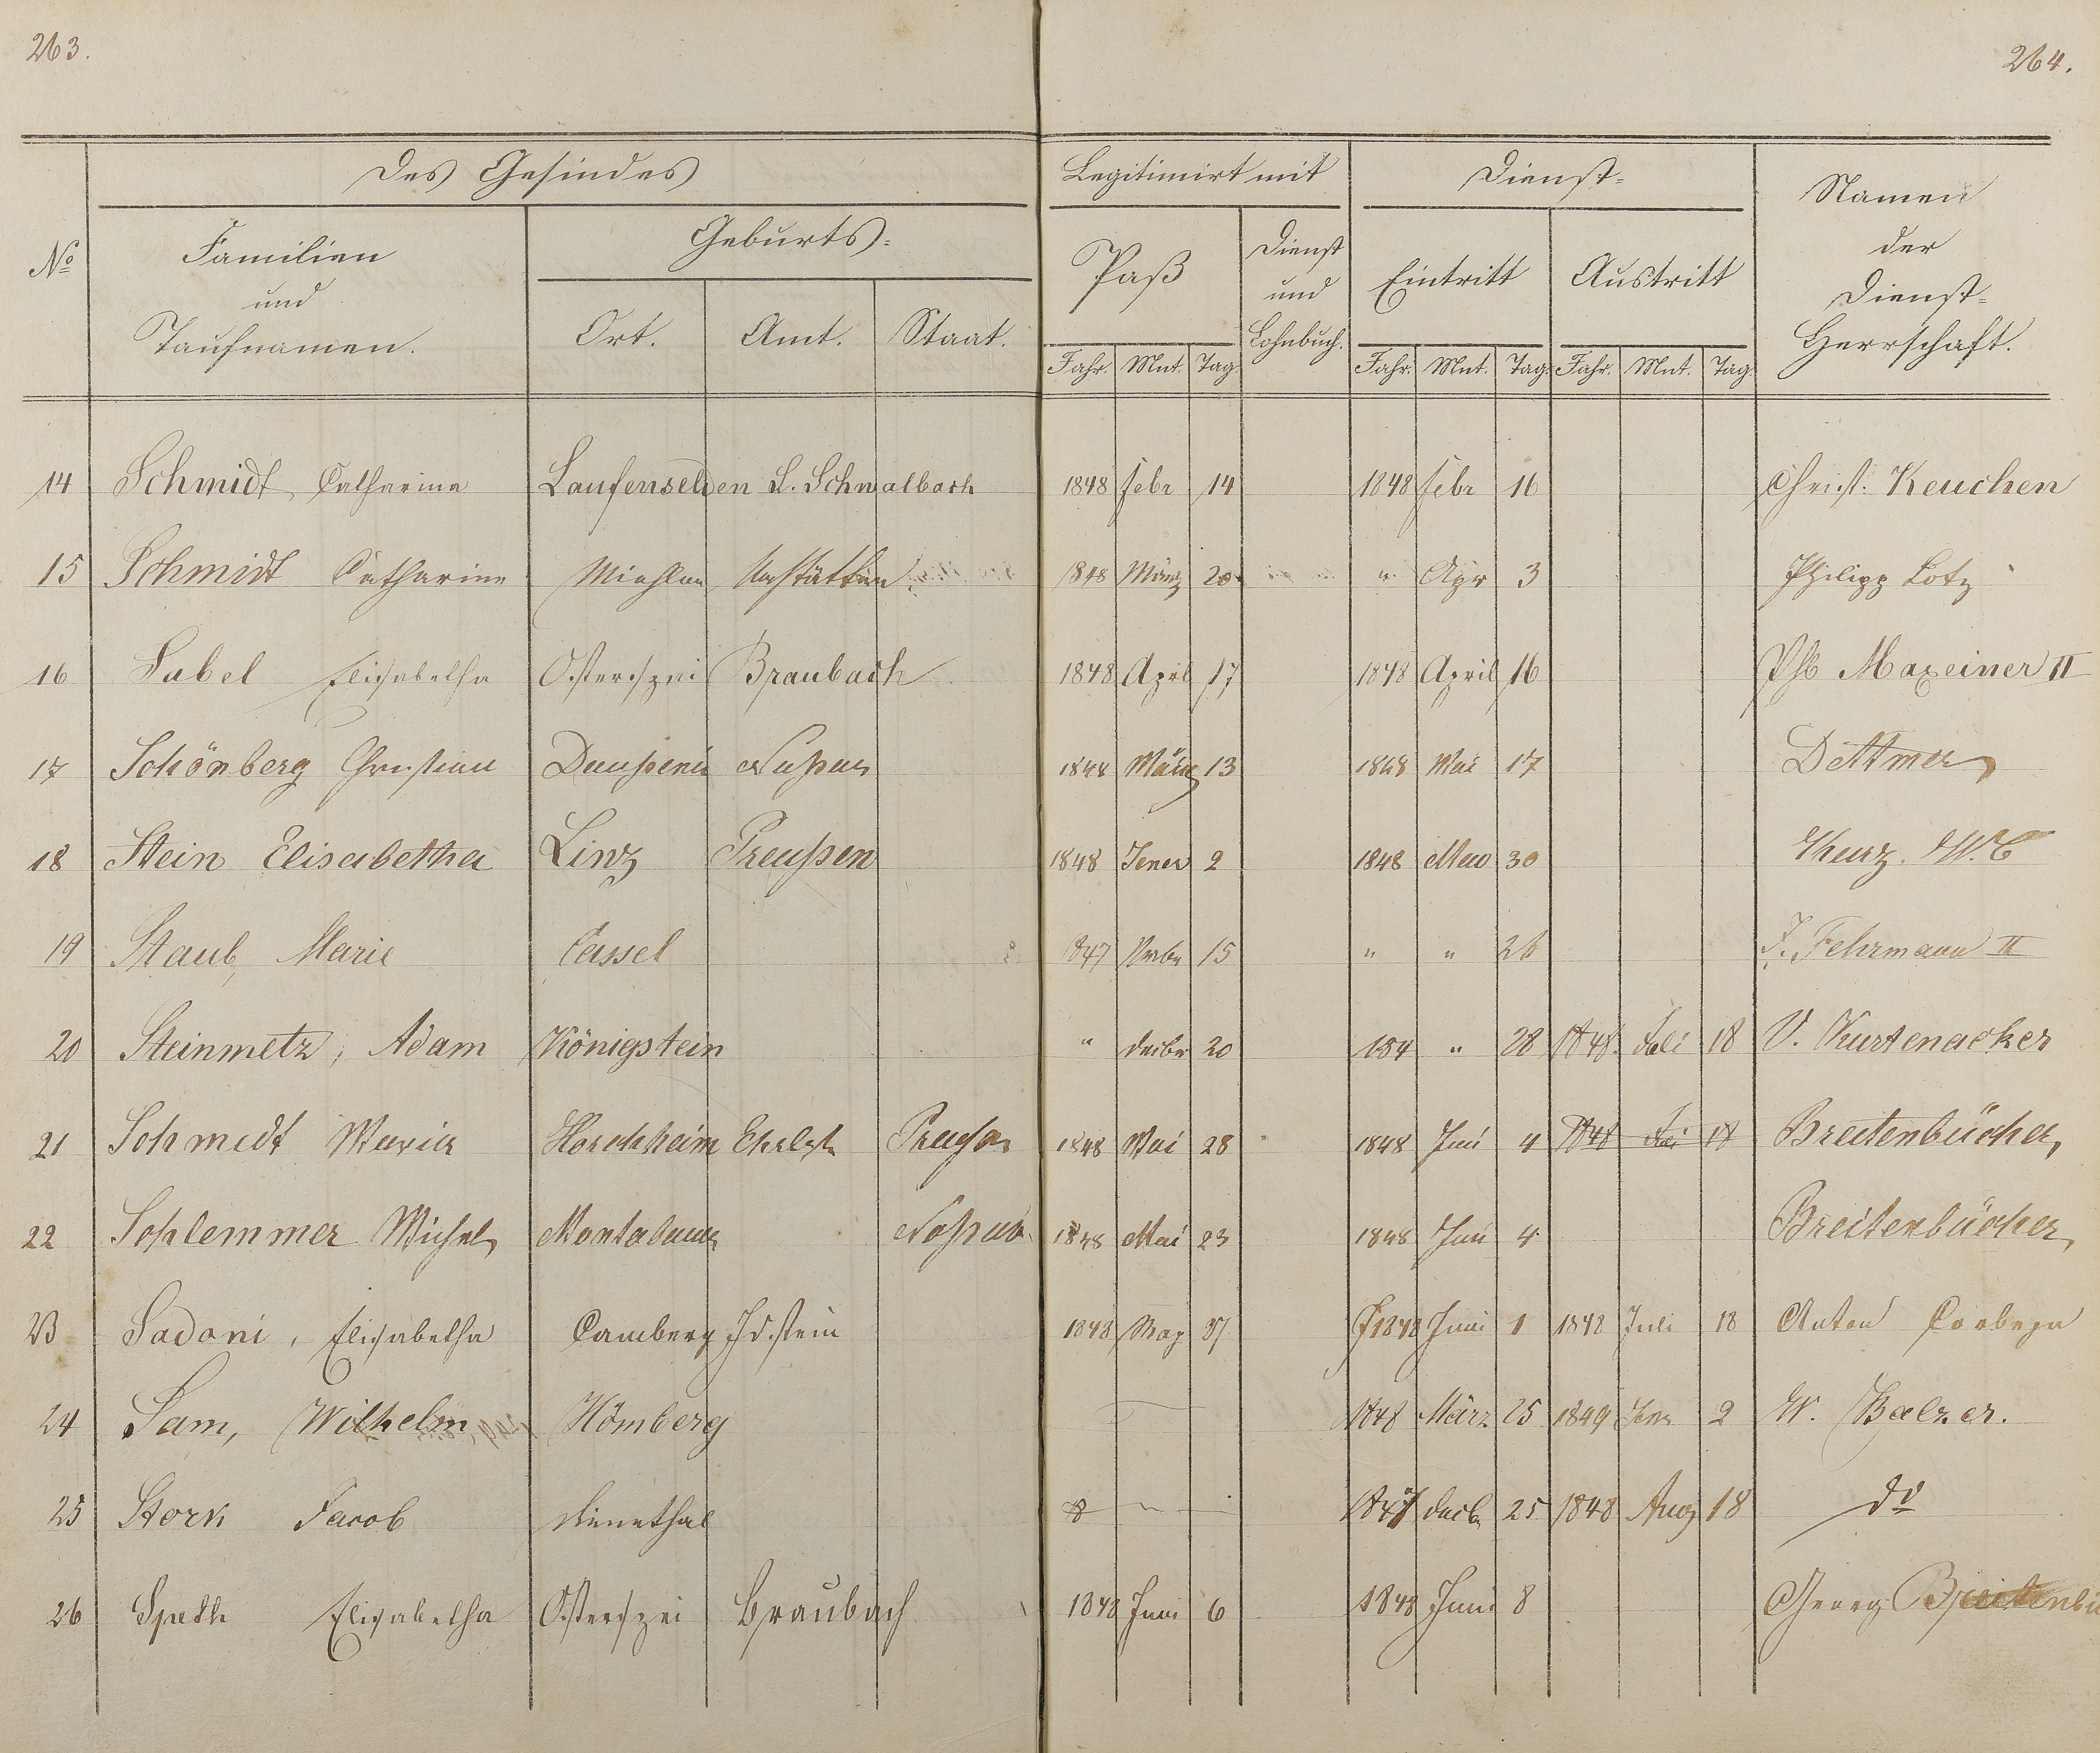 263.
264.
Des Gesindes
Legitimirt mit
Dienst=
Namen
der
Dienst=
Herrschaft.
No
Familien
und
Taufnamen.
Geburts=
Ort. Amt. Staat.
Paß
Dienst
und
Lohnbuch.
Eintritt
Austritt
Jahr. Mnt. Tag.
Jahr. Mnt. Tag. Jahr. Mnt. Tag.
14 Schmidt Catharina Laufenselden L. Schwalbach 1848 Febr 14 1848 Febr 16 Christ: Keuchen
15 Schmidt Catharine Miehlen Nastätten 1848 März 20 " Apr 3 Philipp Lotz
16 Sabel Elisabetha Osterspei Braubach 1848 Aprl 17 1848 April 16 Ph Maxeiner II
17 Schönberg Christian Dausenau Nassau 1848 März 13 1848 Mai 17 Dettmer
18 Stein Elisabetha Linz Preußen 1848 Jener 2 1848 30 Kurz. W. C
19 Staub, Marie Cassel 847 Nvbr 15 " " 26 J. Fehrmann II
20 Steinmetz, Adam Königstein " Decbr 20 184 " 28 1848. Juli 18 V. Kurtenacker
21 Schmidt Maria Horchheim Preußen 1848 Mai 28 1848 Juni 4 1848 18 Breitenbücher,
22 Schlemmer Michel Montabaur Nassau 1848 Mai 23 1848 Juni 4 Breitenbücher,
23 Sadoni, Elisabetha Camberg Idstein 1848 May 1848 Juni 1 1848 Juli 18 Anton
24 Sam, Wilhelm Hömberg 1848 März 25 1849 Jenr 2 W. Balzer.
25 Stork Jacob Dienethal " 1847 Decb 25 1848 Aug 18 do
26 Speth Elisabetha Osterspei Braubach 1848 Juni 6 1848 Juni 8 Georg Breitenbü